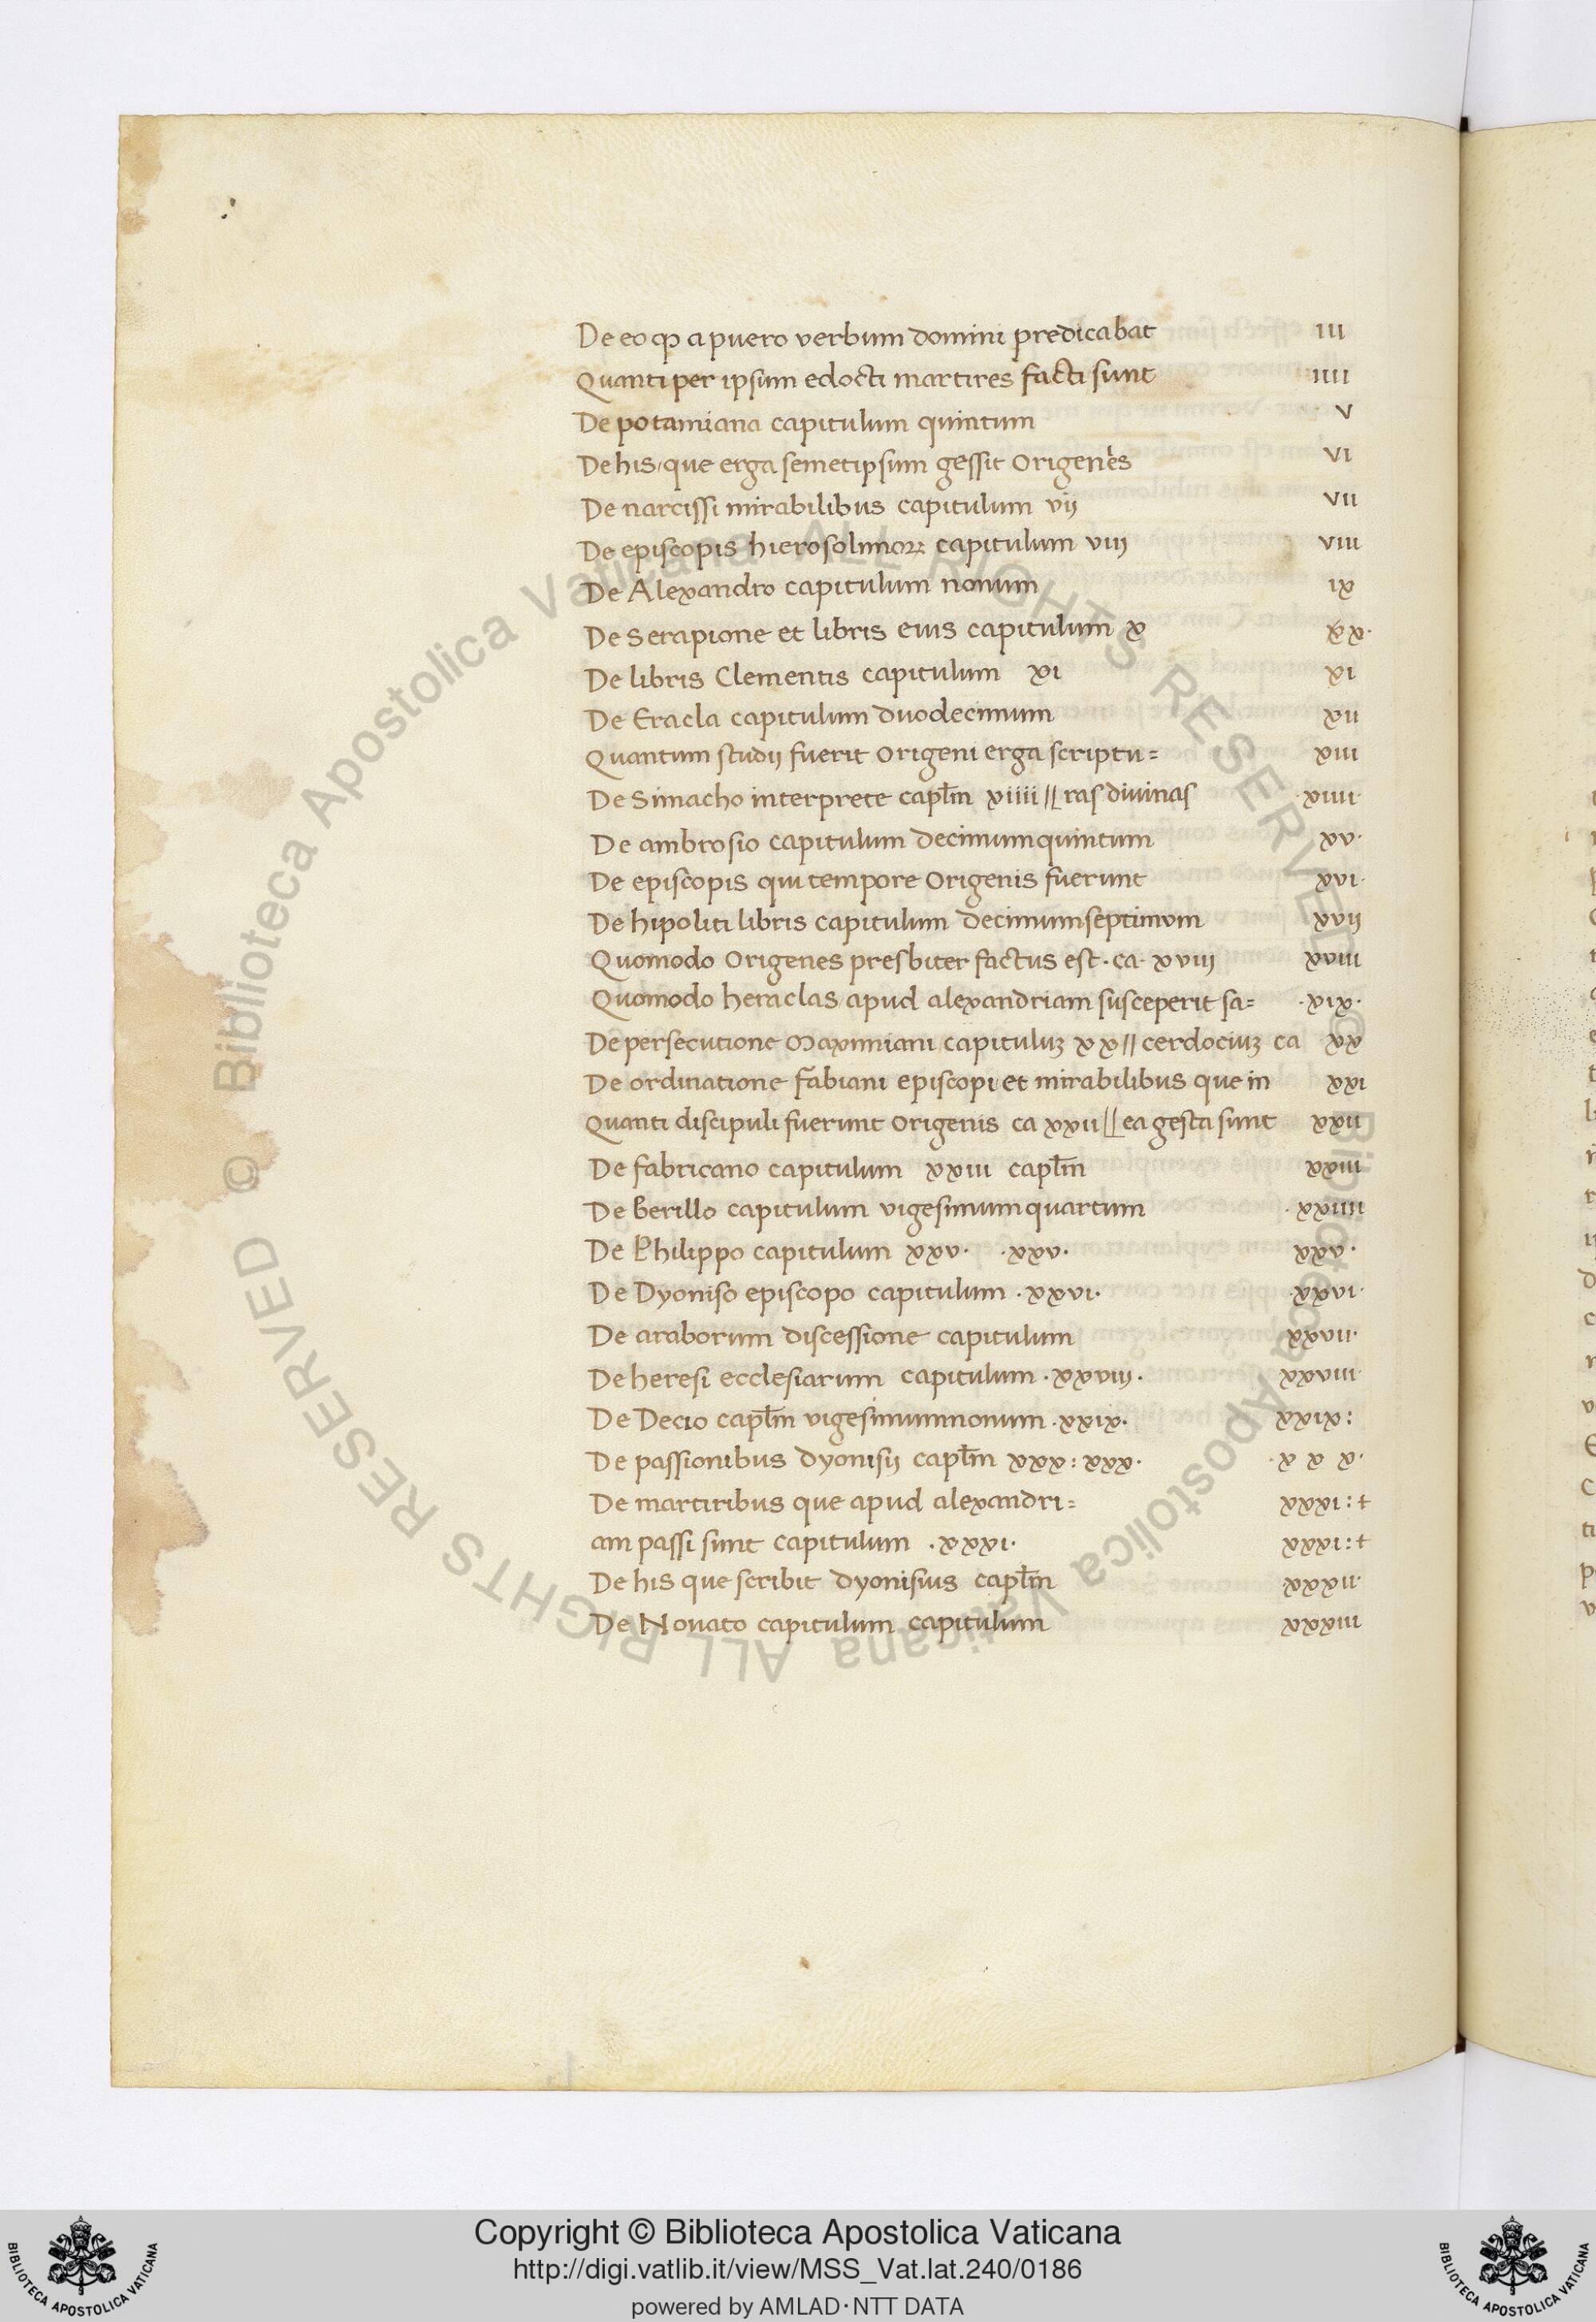 De eo ꝙ a puero verbum domini predicabat III
Quanti per ipsum edocti martires facti sunt IIII
De potamiana capitulum quintum V
De his/que erga semetipsum gessit Origenes VI
De narcissi mirabilibus capitulum vij VII
De episcopis hierosolimoꝝ capitulum viij VIII
De Alexandro capitulum nonum IX
De Serapione et libris eius capitulum x xx·
De libris Clementis capitulum xi xi
De Eracla capitulum duodecimum xii
Quantum studij fuerit Origeni erga scriptu= xiii
De Simacho interprete capłm xiiii // ras diuinas ·xiiii·
De ambrosio capitulum decimumquintum xv·
De episcopis qui tempore Origenis fuerunt xvi·
De hipoliti libris capitulum decimumseptimum xvij
Quomodo Origenes presbiter factus est· ca· xviij xviii
Quomodo heraclas apud alexandriam susceperit sa= ·xix·
De persecutione Maximiani capituluꝫ xx // cerdociuꝫ ca xx
De ordinatione fabiani episcopi et mirabilibus que in xxi
Quanti discipuli fuerunt Origenis ca xxii // ea gesta sunt xxii
De fabricano capitulum xxiii capłm xxiii
De Berillo capitulum vigesimumquartum ·xxiiii
De Philippo capitulum xxv· ·xxv· xxv·
De Dyoniso episcopo capitulum ·xxvi· ·xxvi·
De araborum discessione capitulum xxvii·
De heresi ecclesiarum capitulum ·xxviij· xxviii·
De Decio capłm vigesimumnonum ·xxix· xxix:
De passionibus dyonisij capłm xxx: xxx· ·x x x·
De martiribus que apud alexandri= xxxi:+
am passi sunt capitulum ·xxxi· xxxi:+
De his que scribit dyonisius capłm xxxii·
De Nouato capitulum capitulum xxxiii
© Biblioteca Apostolica Vaticana ALL RIGHTS RESERVED
© Biblioteca Apostolica Vaticana ALL RIGHTS RESERVED
BIBLIOTECA APOSTOLICA VATICANA
Copyright © Biblioteca Apostolica Vaticana
http://digi.vatlib.it/view/MSS_Vat.lat.240/0186
powered by AMLAD·NTT DATA
BIBLIOTECA APOSTOLICA VATICANA